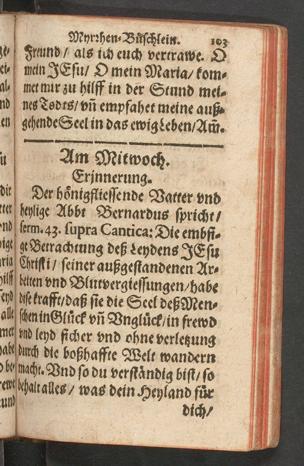 Myrrhen-Büschlein. 103
Freund/ als ich euch vertrawe. O
mein JEsu/ O mein Maria/ kom-
met nur zu hilff in der Stund mei-
nes Todts/ vñ empfahet meine auß-
gehende Seel in das ewig Leben/ Am̃.
Am Mitwoch.
Erjnnerung.
Der hönigfliessende Vatter vnd
heylige Abbt Bernardus spricht/
serm. 43. supra Cantica: Die embsi-
ge Betrachtung deß Leydens JESu
Christi/ seiner außgestandenen Ar-
beiten vnd Blutvergiessungen/ habe
dise krafft/ daß sie die Seel deß Men-
schen in Glück vñ Vnglück/ in frewd
vnd leyd sicher vnd ohne verletzung
durch die boßhaffte Welt wandern
macht. Vnd so du verständig bist/ so
behalt alles/ was dein Heyland für
dich/